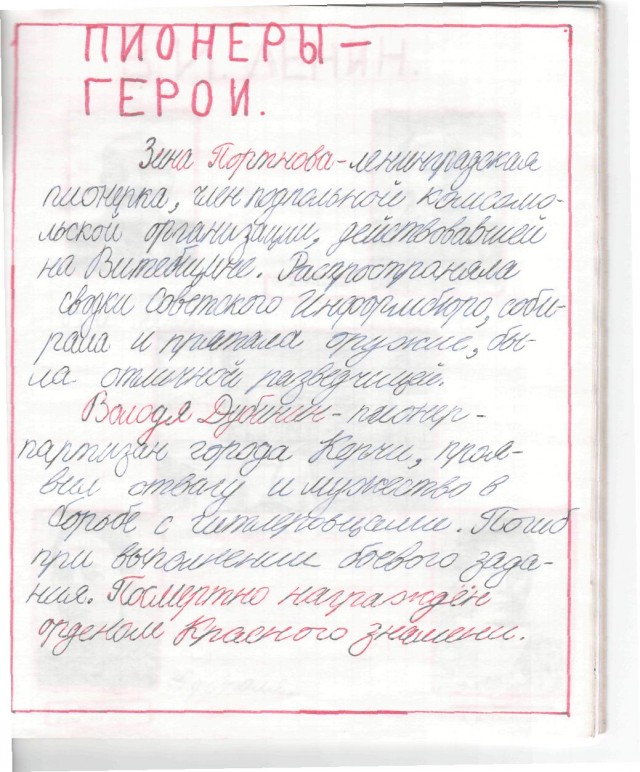 ПИОНЕРЫ –
ГЕРОИ.
Зина Портнова - ленинградская
пионерка, член подпольной комсомо-
льской организации, действовавшей
на Витебщине. Распространяла
сводки Советского Информбюро, соби-
рала и прятала оружие, бы-
ла отличной разведчицей.
Володя Дубинин - пионер -
партизан города Керчи, проя-
вил отвагу и мужество в
борьбе с гитлеровцами. Погиб
при выполнении боевого зада-
ния. Посмертно награждён
орденом Красного знамени.